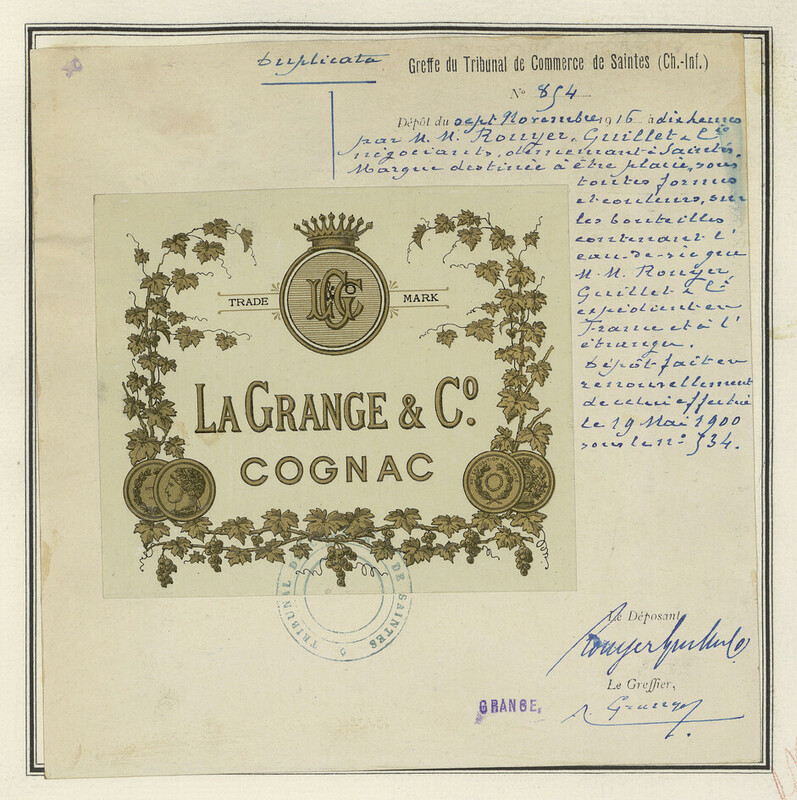 Duplicata
Greffe du Tribunal de Commerce de Saintes (Ch.-Inf.)
N° 854
Dépôt du sept Novembre 1916 à dix heures
par M. M. Rouyer, Guillet & Cie
négociants, demeurant à Saintes.
Marque destinée à être placée, sous
toutes formes
et couleurs, sur
les bouteilles
contenant l'
eau-de-vie que
M. M. Rouyer,
Guillet & Cie
expédient en
France et à l'
étranger.
Dépôt fait en
renouvellement
de celui effectué
le 19 Mai 1900
sous le n° 534.
LGCo
TRADE MARK
LA GRANGE & Co.
COGNAC
TRIBUNAL DE SAINTES
Le Déposant
Rouyer Guillet & Co
Le Greffier,
GRANGE,